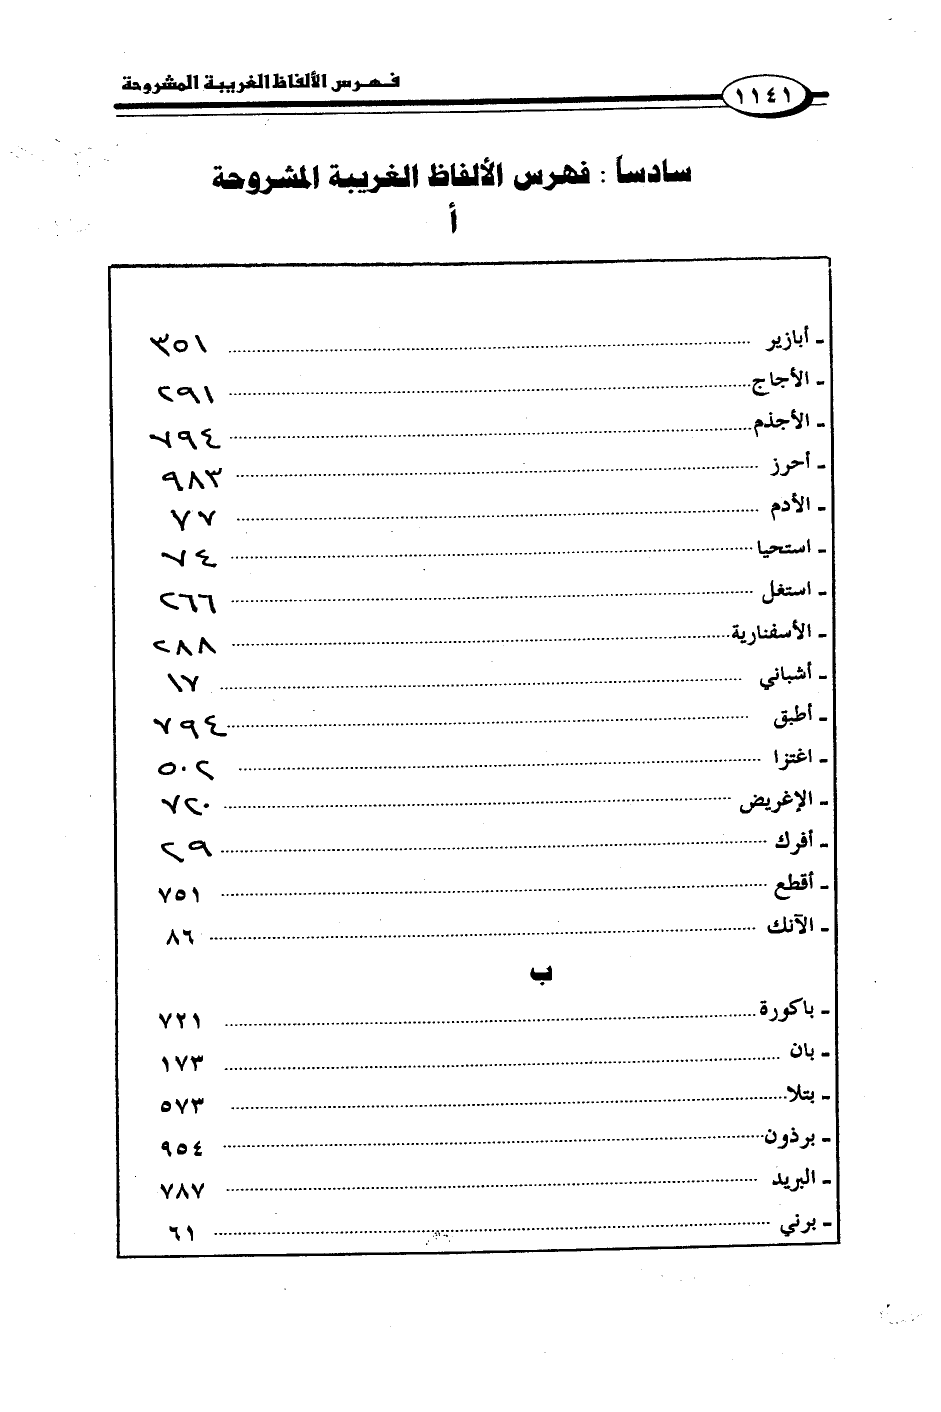 فهرس الألفاظ الغريبة المشروحة
١١٤١
سادساً : فهرس الألفاظ الغريبة المشروحة
أ
- أبازير ........ ٣٥١
- الأجاج ........ ٢٩١
- الأجذم ........ ٧٩٤
- أحرز ........ ٩٨٣
- الأدم ........ ٧٧
- استحيا ........ ٧٤
- استغل ........ ٢٦٦
- الأسفنارية ........ ٢٨٨
- أشباني ........ ١٧
- أطبق ........ ٧٩٤
- اغتزا ........ ٥٠٢
- الإغريض ........ ٧٢٠
- أفرك ........ ٢٩
- أقطع ........ ٧٥١
- الآنك ........ ٨٦
ب
- باكورة ........ ٧٢١
- بان ........ ١٧٣
- بتلا ........ ٥٧٣
- برذون ........ ٩٥٤
- البريد ........ ٧٨٧
- برني ........ ٦١